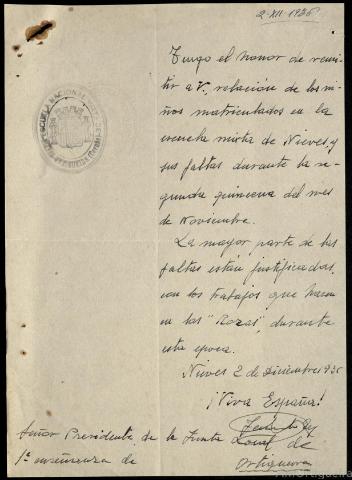 2-XII-1936
Tengo el honor de remi-
tir a V. relación de los ni-
ños matriculados en la
escuela mixta de Nieves, y
sus faltas durante la se-
gunda quincena del mes
de Noviembre.
La mayor parte de las
faltas están justificadas,
con los trabajos que hacen
en las "Rozas", durante
esta época.
Nieves 2 de Diciembre 936
¡Viva España!
Señor Presidente de la Junta Local de
1ª enseñanza de Ortigueira
ESCUELA NACIONAL